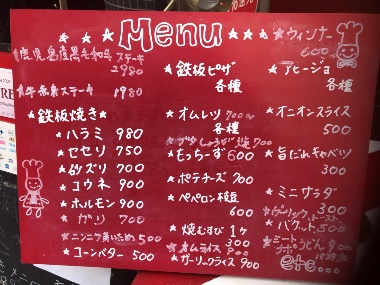 Menu
鹿児島産黒毛和牛ステーキ
2980
牛赤身ステーキ 1980
鉄板焼き
ハラミ 980
セセリ 750
砂ズリ 700
コウネ 900
ホルモン 900
ガリ 700
ニンニク炒いため 500
コーンバター 500
鉄板ピザ
各種
オムレツ 700〜
各種
ブタしょうが焼 700
もっちーず 600
ポテチーズ 700
ペペロン枝豆
600
焼むすび 1ヶ
300
オムライス 900
ガーリックライス 900
ウィンナー
600
アヒージョ
各種
オニオンスライス
500
旨だれキャベツ
300
ミニサラダ
300
ガーリックトースト
バケット 500
ミートうどん 900
etc...